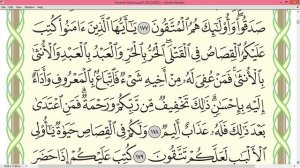 صَدَقُوا۟ وَأُو۟لَٰٓئِكَ هُمُ ٱلْمُتَّقُونَ ١٧٧ يَٰٓأَيُّهَا ٱلَّذِينَ ءَامَنُوا۟ كُتِبَ
عَلَيْكُمُ ٱلْقِصَاصُ فِى ٱلْقَتْلَى ٱلْحُرُّ بِٱلْحُرِّ وَٱلْعَبْدُ بِٱلْعَبْدِ وَٱلْأُنثَىٰ
بِٱلْأُنثَىٰ فَمَنْ عُفِىَ لَهُۥ مِنْ أَخِيهِ شَىْءٌ فَٱتِّبَاعٌۢ بِٱلْمَعْرُوفِ وَأَدَآءٌ
إِلَيْهِ بِإِحْسَٰنٍ ذَٰلِكَ تَخْفِيفٌ مِّن رَّبِّكُمْ وَرَحْمَةٌ فَمَنِ ٱعْتَدَىٰ
بَعْدَ ذَٰلِكَ فَلَهُۥ عَذَابٌ أَلِيمٌ ١٧٨ وَلَكُمْ فِى ٱلْقِصَاصِ حَيَوٰةٌ يَٰٓأُو۟لِى
ٱلْأَلْبَٰبِ لَعَلَّكُمْ تَتَّقُونَ ١٧٩ كُتِبَ عَلَيْكُمْ إِذَا حَضَرَ